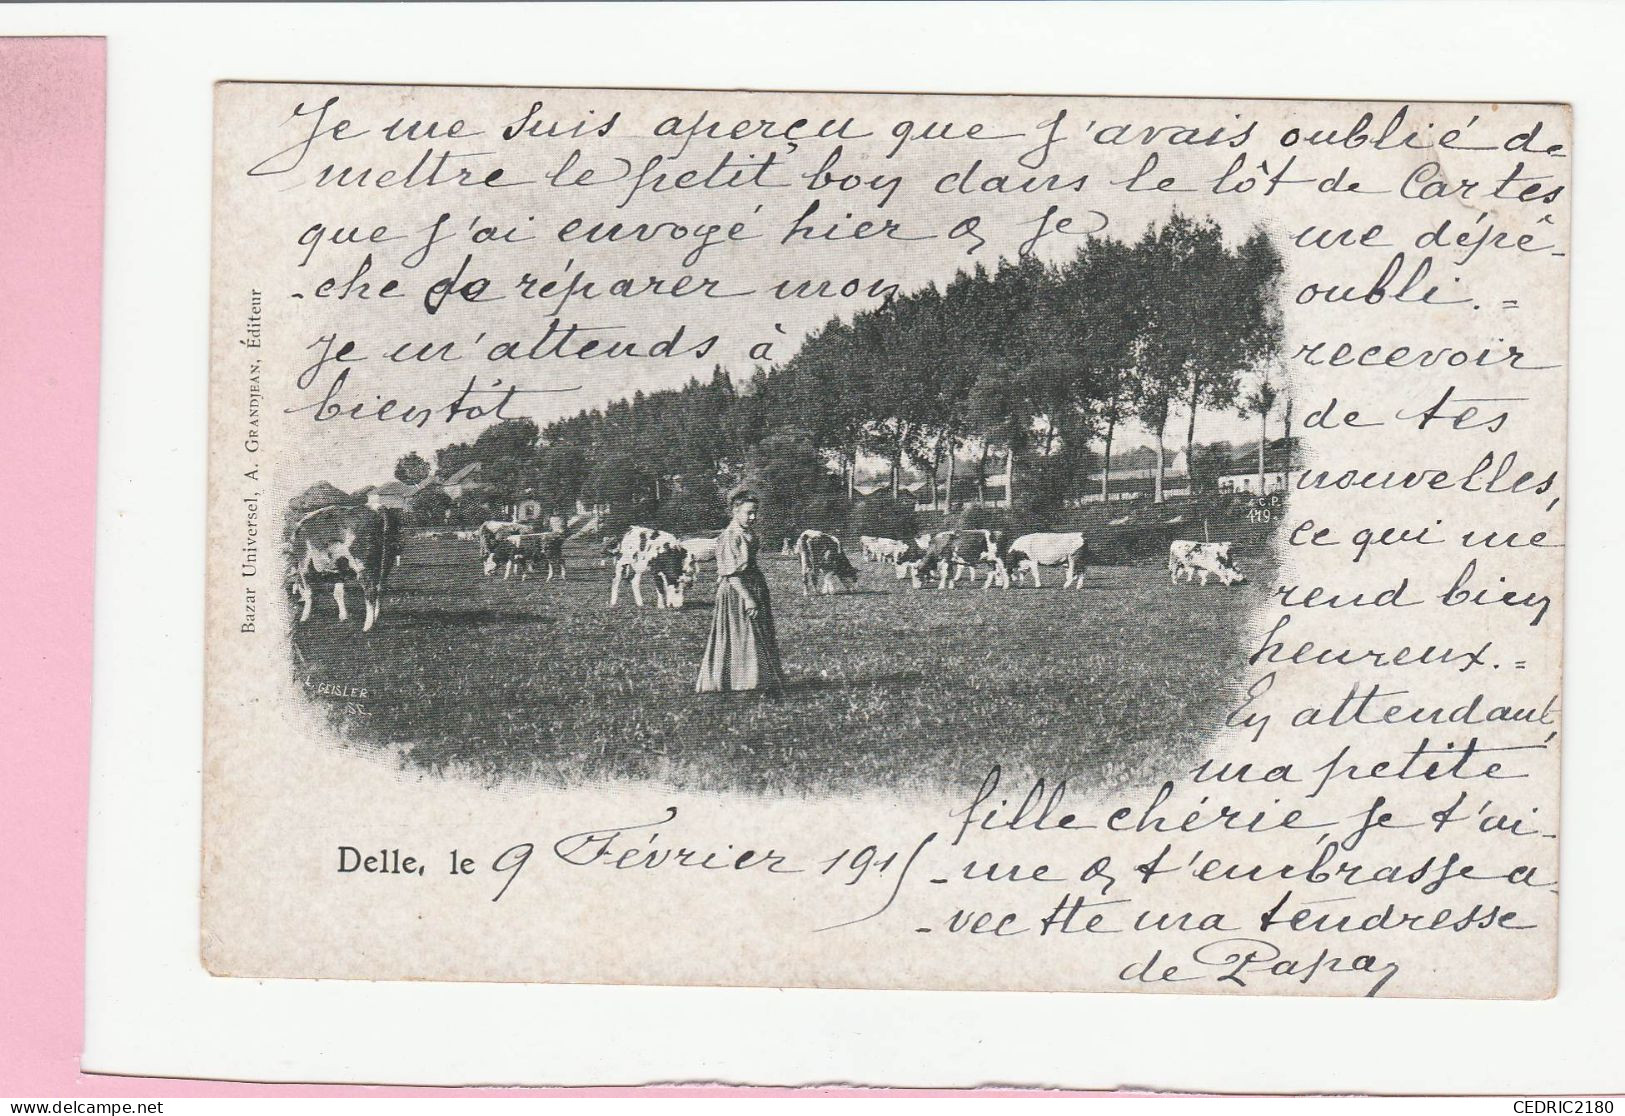 Je me suis aperçu que j'avais oublié de
mettre le petit boy dans le lôt de Cartes
que j'ai envoyé hier & je me dépê-
-che de réparer mon oubli.=
Je m'attends à recevoir
bientôt de tes
nouvelles,
ce qui me
rend bien
heureux.=
En attendant,
ma petite
fille chérie, je t'ai-
-me & t'embrasse a-
-vec tte ma tendresse
de Papa
Delle, le 9 Février 1915
Bazar Universel, A. GRANDJEAN, Éditeur
L. GEISLER
SC.
C.P.
419
CEDRIC2180